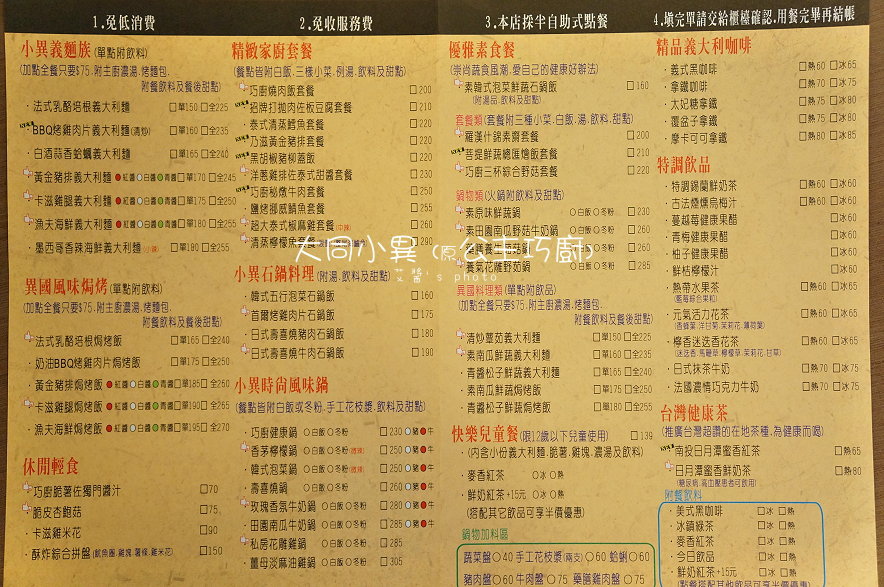 1.免低消費
2.免收服務費
3.本店採半自助式點餐
4.填完單請交給櫃檯確認.用餐完畢再結帳
小異義麵族(單點附飲料)
(加點全餐只要$75.附主廚濃湯.烤麵包.
附餐飲料及餐後甜點)
法式乳酪培根義大利麵 □單150 □全225
BBQ烤雞肉片義大利麵(清炒) □單160 □全235
白酒蒜香蛤蠣義大利麵 □單165 □全240
黃金豬排義大利麵 紅醬 白醬 青醬 □單170 □全245
卡滋雞腿義大利麵 紅醬 白醬 青醬 □單175 □全250
漁夫海鮮義大利麵 紅醬 白醬 青醬 □單180 □全255
墨西哥香辣海鮮義大利麵(小辣) □單180 □全255
異國風味焗烤(單點附飲料)
(加點全餐只要$75.附主廚濃湯.烤麵包.
附餐飲料及餐後甜點)
法式乳酪培根焗烤飯 □單165 □全240
奶油BBQ烤雞肉片焗烤飯 □單175 □全250
黃金豬排焗烤飯 紅醬 白醬 青醬 □單185 □全260
卡滋雞腿焗烤飯 紅醬 白醬 青醬 □單190 □全265
漁夫海鮮焗烤飯 紅醬 白醬 青醬 □單195 □全270
休閒輕食
巧廚脆薯佐獨門醬汁 □70
脆皮杏鮑菇 □75
卡滋雞米花 □90
酥炸綜合拼盤(魷魚圈.雞塊.薯條.雞米花) □150
精緻家廚套餐
(餐點皆附白飯.三樣小菜.例湯.飲料及甜點)
巧廚燒肉飯套餐 □200
招牌打拋肉佐板豆腐套餐 □210
泰式清蒸鱈魚套餐 □220
乃滋黃金豬排套餐 □220
黑胡椒豬柳蓋飯 □220
洋蔥雞排佐泰式甜醬套餐 □230
巧廚秘燉牛肉套餐 □250
鹽烤挪威鯖魚套餐 □255
超大泰式椒麻雞套餐(中辣) □260
清蒸檸檬魚套餐 □290
小異石鍋料理(附湯.飲料及甜點)
韓式五行泡菜石鍋飯 □160
首爾烤雞肉片石鍋飯 □175
日式壽喜燒豬肉石鍋飯 □180
日式壽喜燒牛肉石鍋飯 □190
小異時尚風味鍋
(餐點皆附白飯或冬粉.手工花枝漿.飲料及甜點)
巧廚健康鍋 ○白飯○冬粉 □230 豬 牛
香茅檸檬鍋 ○白飯○冬粉(微辣) □250 豬 牛
韓式泡菜鍋 ○白飯○冬粉(微辣) □250 豬 牛
壽喜燒鍋 ○白飯○冬粉 □260 豬 牛
玫瑰香氛牛奶鍋 ○白飯○冬粉 □280 豬 牛
田園南瓜牛奶鍋 ○白飯○冬粉 □285 豬 牛
私房花雕雞鍋 ○白飯○冬粉 □285
薑母淡麻油雞鍋 ○白飯○冬粉 □305
優雅素食餐
(崇尚蔬食風潮.愛自己的健康好辦法)
素韓式泡菜鮮蔬石鍋飯 □160
(附湯品.飲料及甜點)
套餐類(套餐附三種小菜.白飯.湯.飲料.甜點)
羅漢什錦素齋套餐 □200
菩提鮮蔬總匯燴飯套餐 □210
巧廚三杯綜合野菇套餐 □220
鍋物類(火鍋附飲料及甜點)
素原味鮮蔬鍋 ○白飯○冬粉 □230
素田園南瓜野菇牛奶鍋 ○白飯○冬粉 □260
養生菇菇鍋 ○白飯○冬粉 □260
養氣花雕野菇鍋 ○白飯○冬粉 □285
異國料理類(單點附飲品)
(加點全餐只要$75.附主廚濃湯.烤麵包.
附餐飲料及餐後甜點)
清炒蕈菇義大利麵 □單150 □全225
素南瓜鮮蔬義大利麵 □單160 □全235
青醬松子鮮蔬義大利麵 □單165 □全240
素南瓜鮮蔬焗烤飯 □單175 □全250
青醬松子鮮蔬焗烤飯 □單180 □全255
快樂兒童餐(限12歲以下兒童使用) □139
(內含小份義大利麵.脆薯.雞塊.濃湯及飲料)
麥香紅茶 ○冰○熱
鮮奶紅茶+15元 ○冰○熱
(搭配其它飲品可享半價優惠)
鍋物加料區
蔬菜盤○40 手工花枝漿(兩支)○60 蛤蜊○60
豬肉盤○60 牛肉盤○75 藥膳雞肉盤○75
精品義大利咖啡
義式黑咖啡 □熱60 □冰65
拿鐵咖啡 □熱70 □冰75
太妃糖拿鐵 □熱75 □冰80
覆盆子拿鐵 □熱75 □冰80
摩卡可可拿鐵 □熱80 □冰85
特調飲品
特調錫蘭鮮奶茶 □熱60 □冰60
古法煙燻烏梅汁 □熱60 □冰60
蔓越莓健康果醋 □冰60
青梅健康果醋 □冰60
柚子健康果醋 □冰60
鮮桔檸檬汁 □冰60
熱帶水果茶 □熱60 □冰60
(藍莓綜合果粒)
元氣活力花茶 □熱70 □冰70
(香蜂葉.洋甘菊.茉莉花.薄荷葉)
檸香迷迭香花茶 □熱70 □冰70
(迷迭香.馬鞭草.檸檬草.茉莉花.甘草)
日式抹茶牛奶 □熱70 □冰75
法國濃情巧克力牛奶 □熱70 □冰75
台灣健康茶
(推廣台灣超讚的在地茶種.為健康而喝)
南投日月潭蜜香紅茶 □熱65
日月潭蜜香鮮奶茶 □熱80
附餐飲料
美式黑咖啡 □冰 □熱
冰鎮綠茶 □冰
麥香紅茶 □冰 □熱
今日飲品 □冰 □熱
鮮奶紅茶+15元 □冰 □熱
(點餐搭配其他飲品可享半價優惠)
大同小異(原公主巧廚)
艾醬's photo